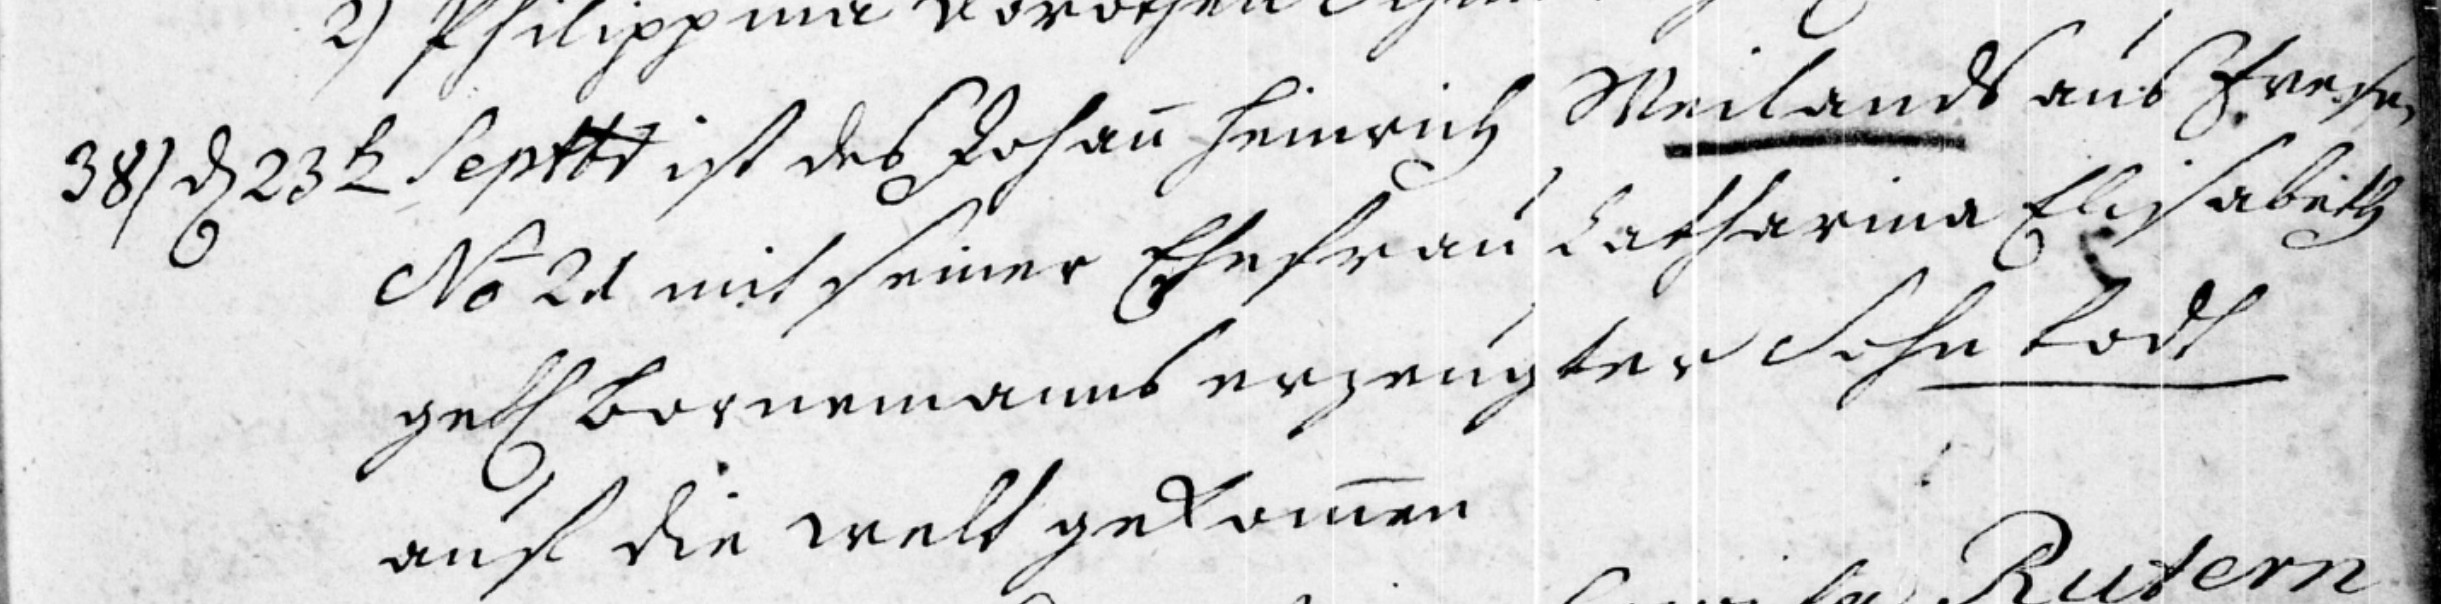 2) Philippina Dorothea
38) d 23t Septbr ist des Johañ Heinrich Weilands aus
No 21 mit seiner Ehefrau Catharina Elisabeth
geb Bornemanns erzeugter Sohn todt
auf die welt gekom̄en
Rutern